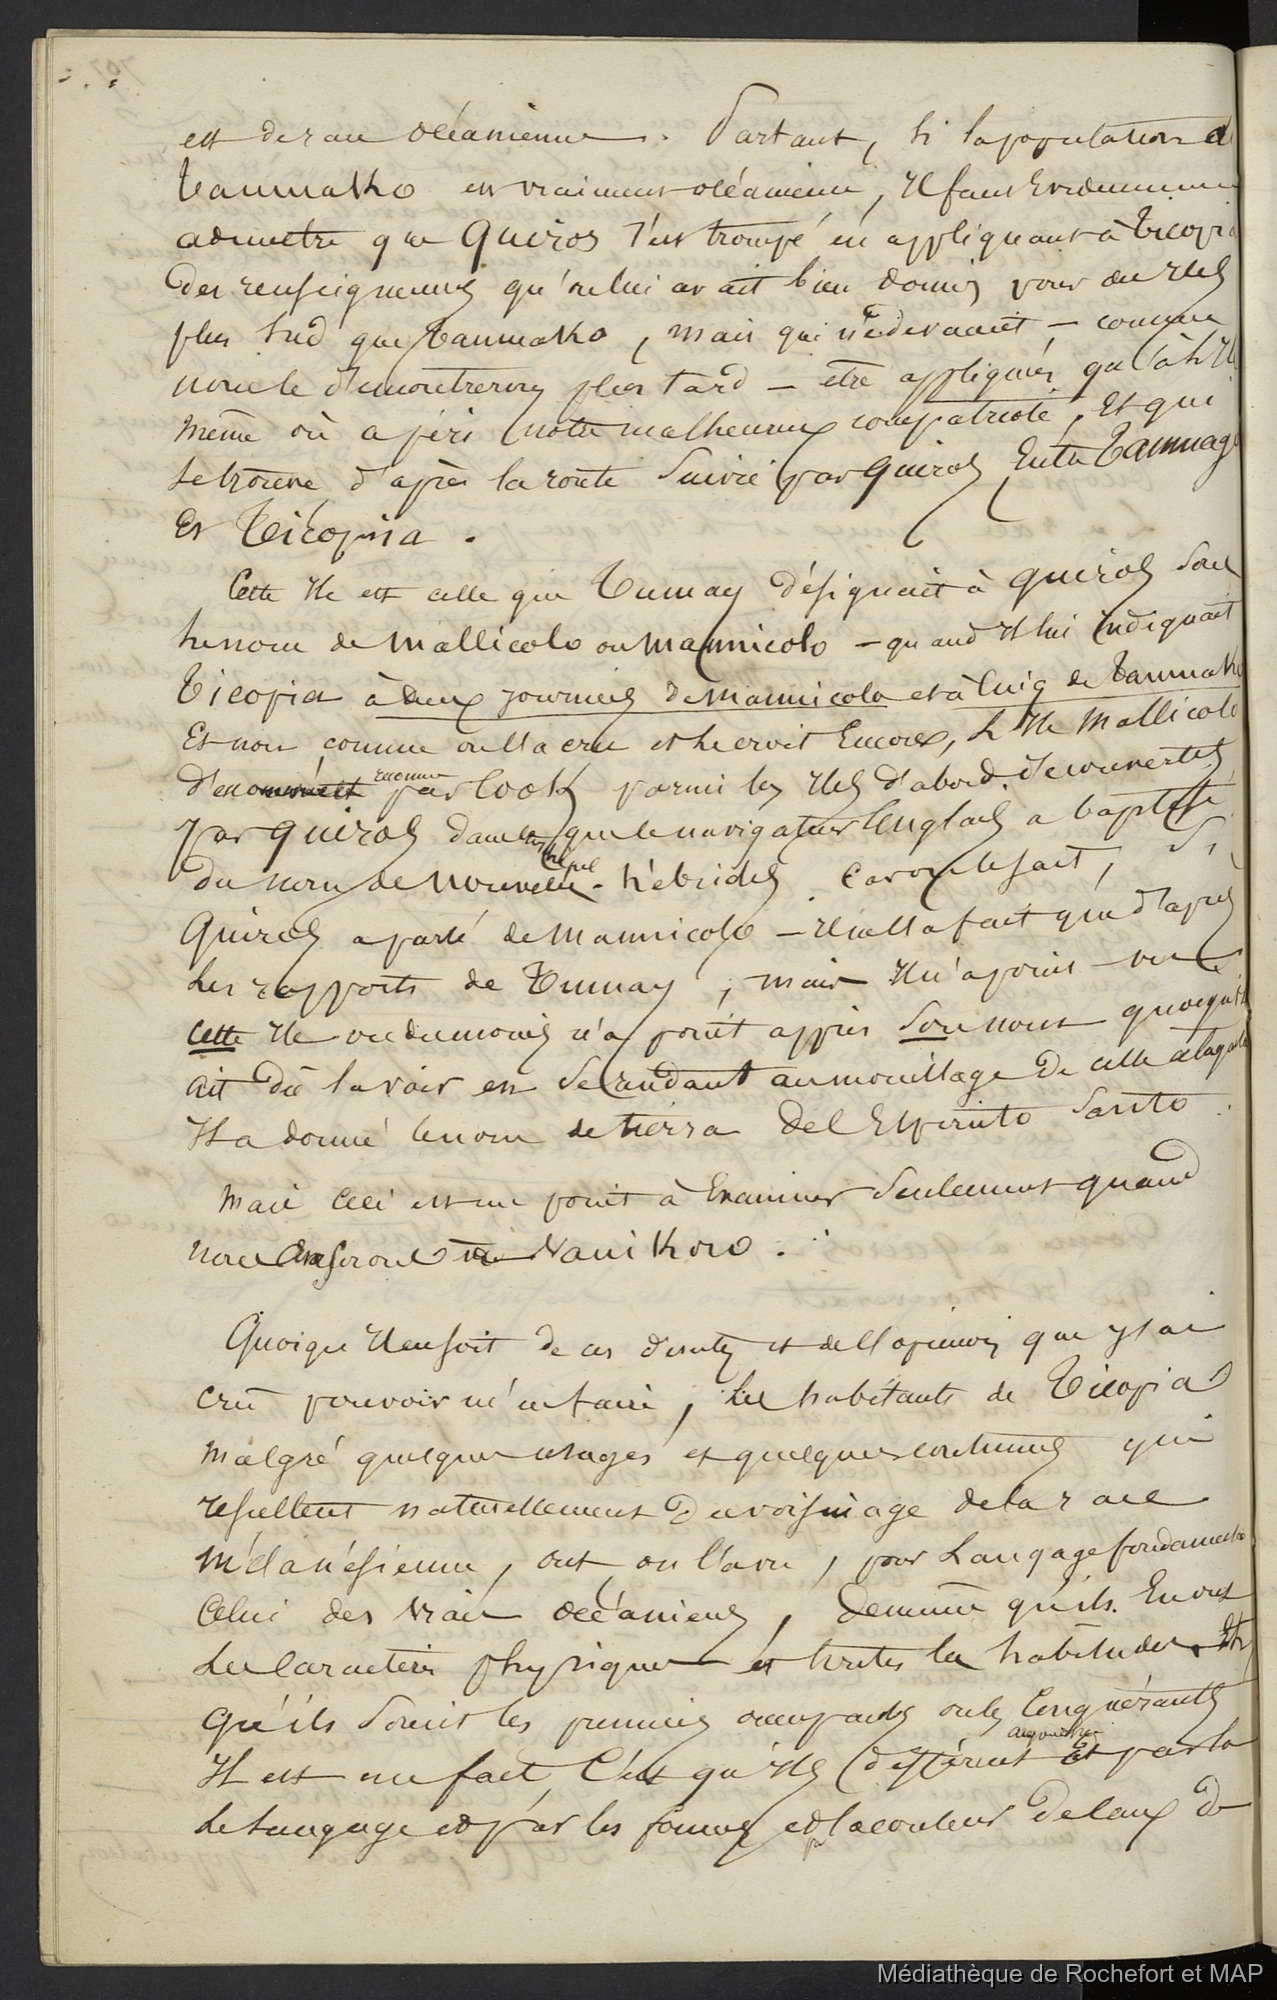 est de race océanienne. Partant, si la population de
Taumako est vraiment océanienne, il faut evidemment
admettre que Quiros s'est trompé en appliquant à Ticopia
des renseignemens qu'on lui avait bien donnés pour des iles
plus sud que Taumako, mais qui ne devaient - comme
nous le démontrerons plus tard - être appliqués qu'à l'ile
même où a péri notre malheureux compatriote, Et qui
se trouve d'après la route suivie par Quiros, Entre Taumago
Et Ticopia.
Cette ile est celle que Tumay désignait à Quiros sous
le nom de Mallicolo ou Mannicolo - quand il lui indiquait
Ticopia à deux journées de Mannicolo et à cinq de Taumako
Et non comme on l'a cru et le croit Encore, L'ile Mallicolo
reconnue
par Cook parmi les iles d'abord découvertes
par Quiros dans les que le navigateur anglais a baptisé
du nom de Nouvelles-hébrides. Car on le sait, Si
Quiros a parlé de Mannicolo - il ne l'a fait que d'après
les rapports de Tumay, mais il n'a point vu
cette ile ou du moins n'a point appris son nom quoiqu'il
ait dû la voir en se rendant au mouillage de celle à laquelle
il a donné le nom de tierra del Espiritu Santo.
Mais Ceci est un point à Examiner Seulement quand
nous en serons à Vanikoro.
Quoiqu'il en soit de ces doutes et de l'opinion que j'ai
cru pouvoir m'en faire, les habitants de Ticopia
malgré quelques usages et quelques coutumes qui
resultent naturellement du voisinage de la race
Mélanésienne, ont, on l'a vu, pour Langage fondamental
Celui des vrais océaniens, de même qu'ils En ont
les caractères physiques et toutes les habitudes.
Qu'ils soient les premiers occupants ou les Conquérants
Il est un fait, C'est qu'ils différent
aujourd'hui
Et par la
le langage et par les formes et
par
la couleur de ceux de
Médiathèque de Rochefort et MAP